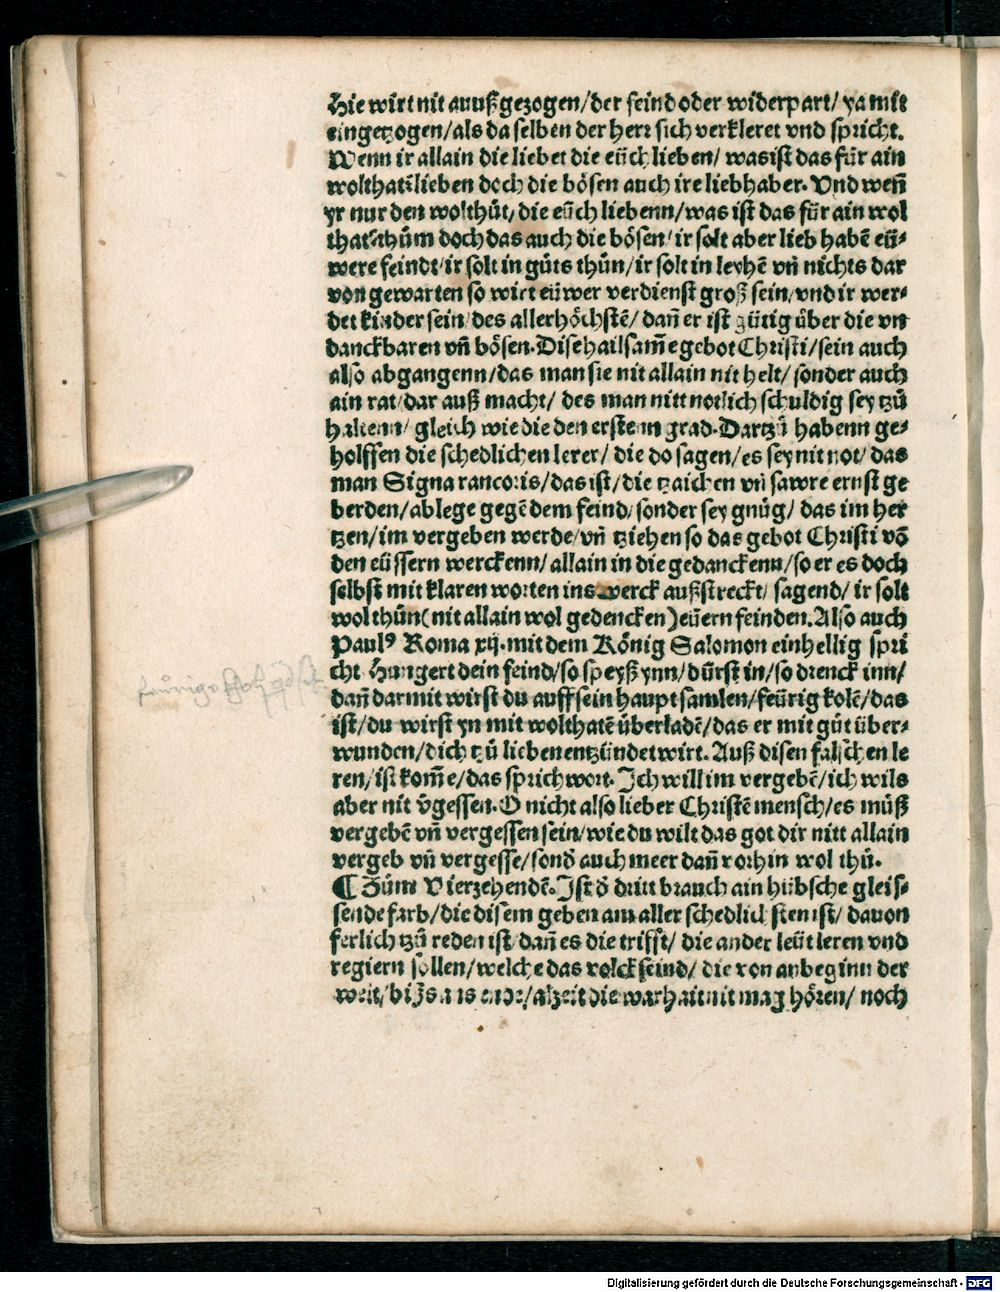 Hie wirt nit auußgezogen/der feind oder widerpart/ ya mit
eingetzogen/als da selben der herr sich verkleret vnd spricht.
Wenn ir allain die liebet die eüch lieben/ was ist das für ain
wolthat? lieben doch die bösen auch ire liebhaber. Vnd weñ
yr nur den wolthůt/ die eüch liebenn/was ist das für ain wol
that? thům doch das auch die bösen/ ir solt aber lieb habē eü⸗
were feindt/ir solt in gůts thůn/ir solt in leyhē vñ nichts dar
von gewarten so wirt eüwer verdienst groß sein/vnd ir wer⸗
det kinder sein/des allerhöchstē/ dañ er ist gütig über die vn
danckbaren vñ bösen. Dise hailsam̄e gebot Christi/sein auch
also abgangenn/das man sie nit allain nit helt/ sonder auch
ain rat/dar auß macht/ des man nitt notlich schuldig sey tzů
haltenn/ gleich wie die den erstenn grad. Dartzů habenn ge⸗
holffen die schedlichen lerer/ die do sagen/es sey nit not/ das
man Signa rancoris/das ist/die tzaichen vñ sawre ernst ge
berden/ablege gegē dem feind/sonder sey gnůg/ das im her
tzen/im vergeben werde/vñ tziehen so das gebot Christi vō
den eüssern werckenn/allain in die gedanckenn/so er es doch
selbst mit klaren worten ins werck außstreckt/ sagend/ ir solt
wol thůn(nit allain wol gedencken)eüern feinden. Also auch
Paulꝰ Roma xij. mit dem König Salomon einhellig spri
cht Hungert dein feind/so speyß ynn/ dürst in/so drenck inn/
dañ darmit wirst du auff sein haupt samlen/feürig kolē/das
ist/du wirst yn mit wolthatē überladē/das er mit güt über⸗
wunden/dich tzů lieben entzündet wirt. Auß disen falschen le
ren/ist kom̄e/das sprichwort. Ich will im vergebē/ich wils
aber nit v̄gessen. O nicht also lieber Christē mensch/es můß
vergebē vñ vergessen sein/wie du wilt das got dir nitt allain
vergeb vñ vergesse/sond̄ auch meer dañ vorhin wol thů.
¶ Zům Vierzehendē. Ist d̄ dritt brauch ain hübsche gleis⸗
sende farb/die disem geben am aller schedlichsten ist/ dauon
ferlich tzů reden ist/dañ es die trifft/ die ander leüt leren vnd
regiern sollen/welche das volck seind/ die von anbeginn der
welt/biß ans ende/alzeit die warhait nit mag hören/ noch
feürige
Digitalisierung gefördert durch die Deutsche Forschungsgemeinschaft - DFG